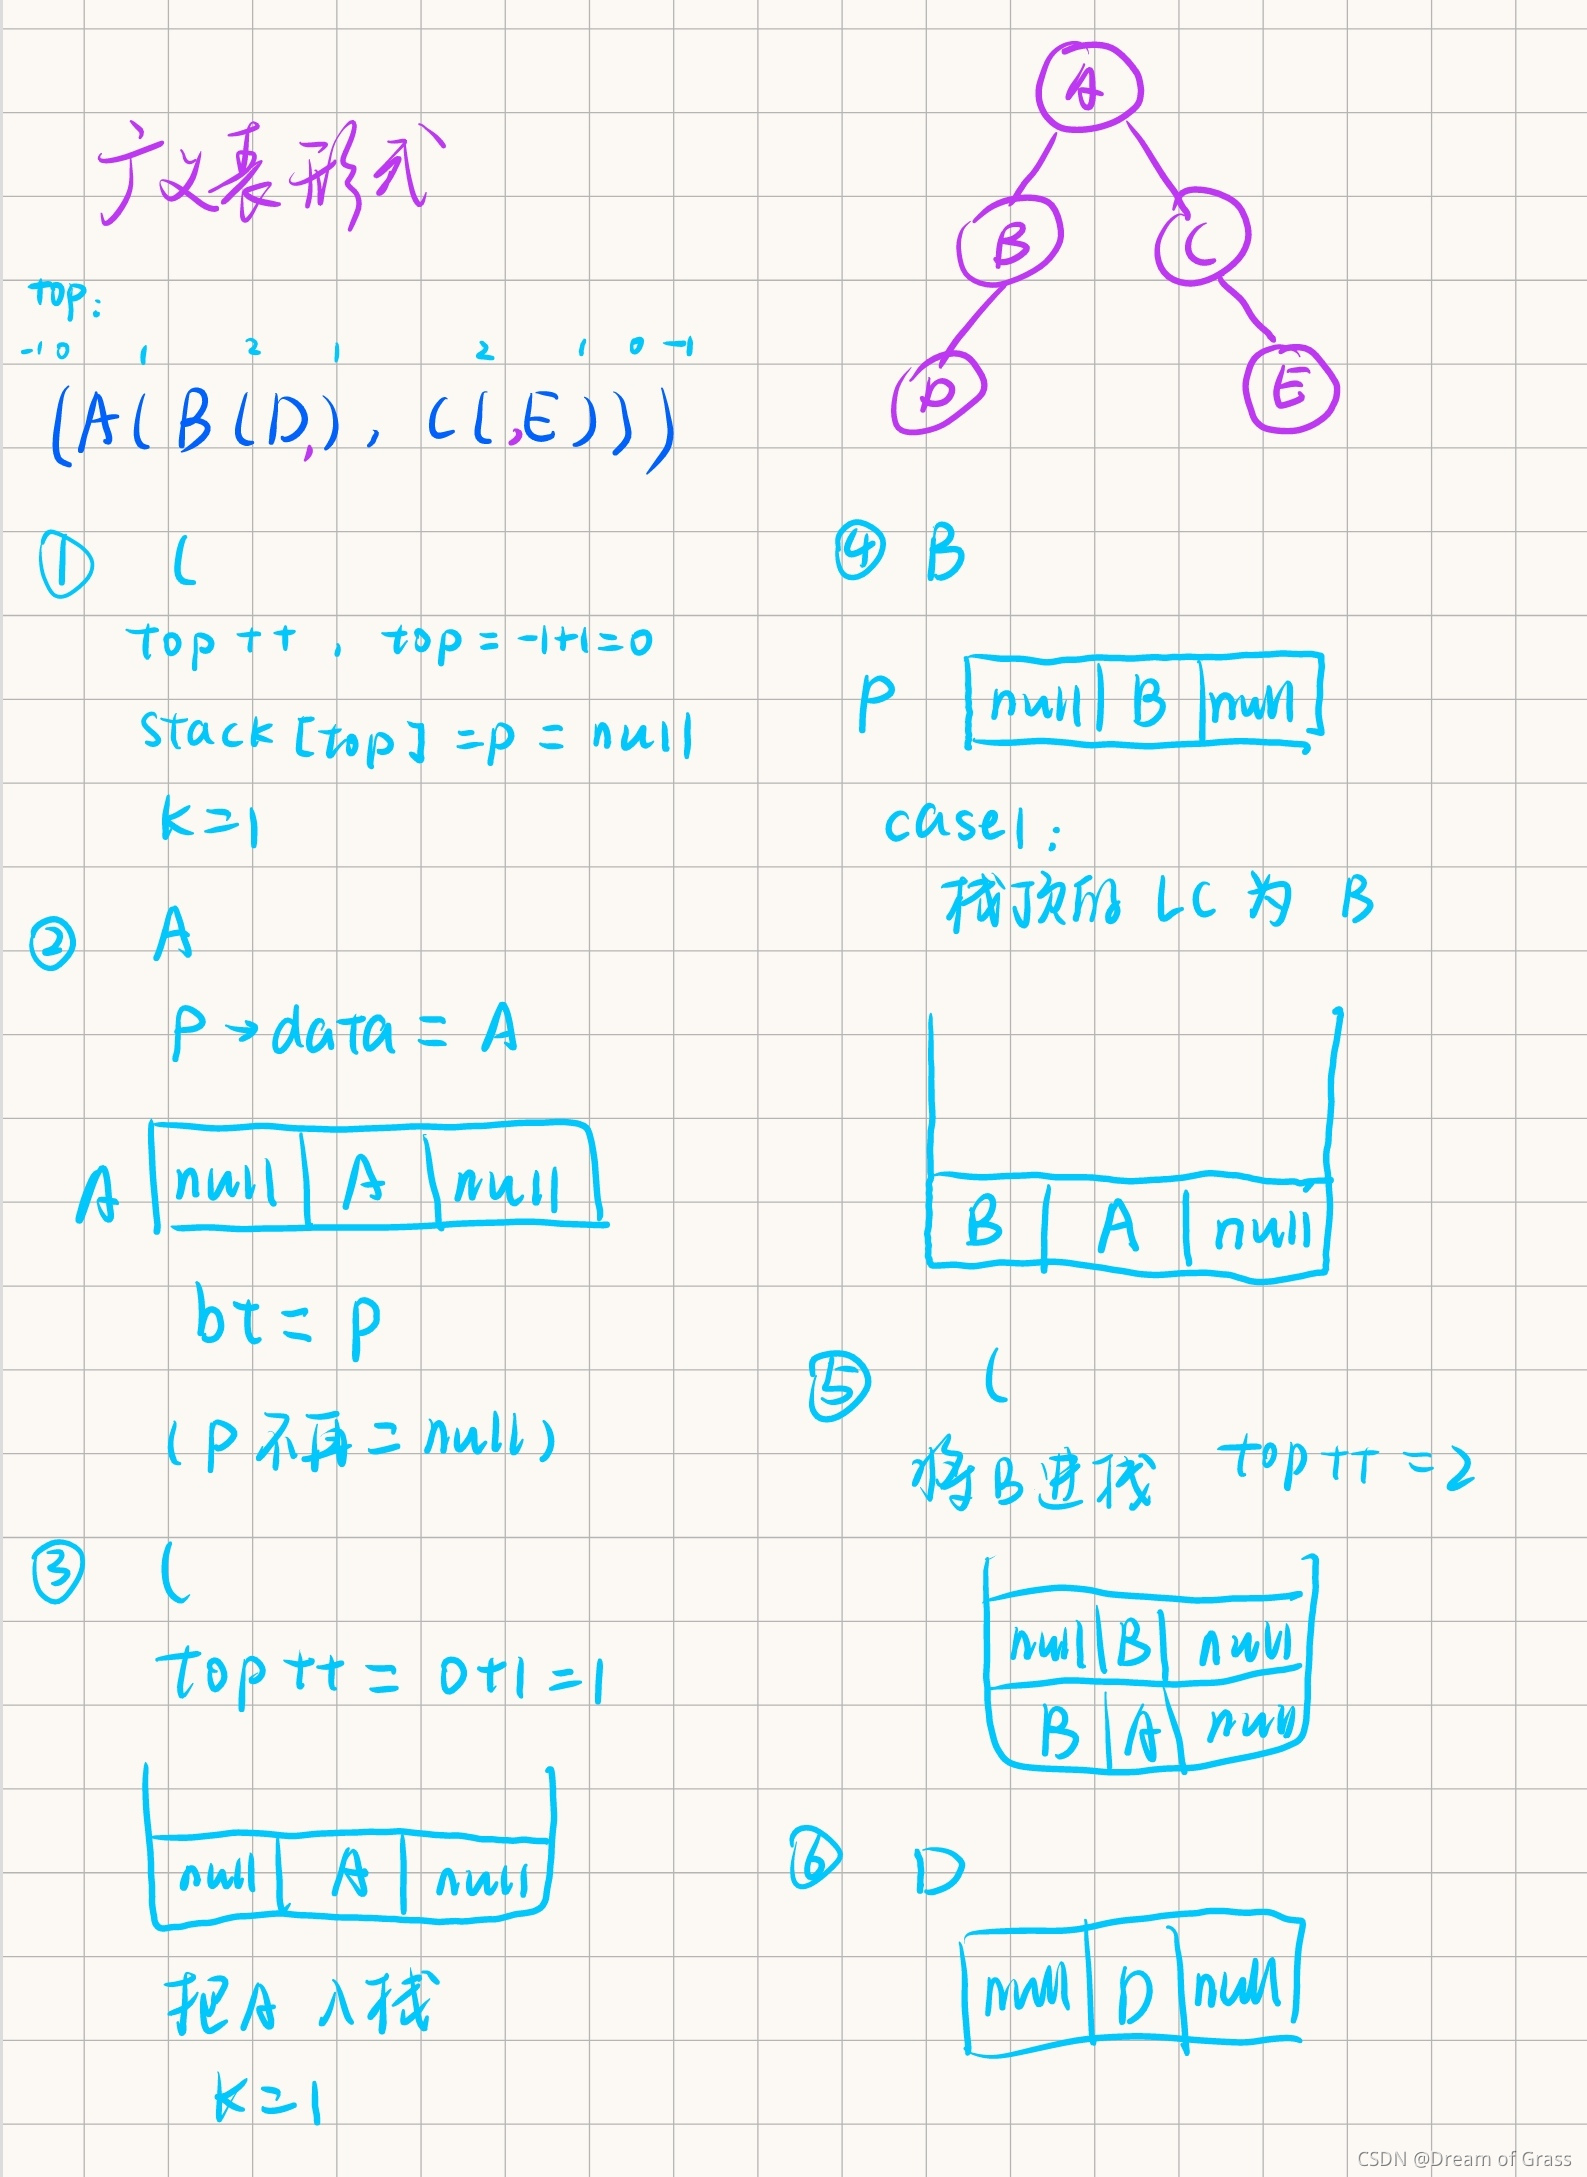 广义表形式
A
B
C
D
E
top:
-1 0 1 2 1 2 1 0 -1
(A(B(D,), C(,E)))
① (
top++, top = -1+1=0
stack [top] =p = null
k=1
② A
P→data = A
A null A null
bt = p
(P不再=null)
③ (
top++ = 0+1=1
null A null
把A入栈
k=1
④ B
P null B null
case1:
栈顶的 LC 为 B
B A null
⑤ (
将B进栈 top++ =2
null B null
B A null
⑥ D
null D null
CSDN @Dream of Grass